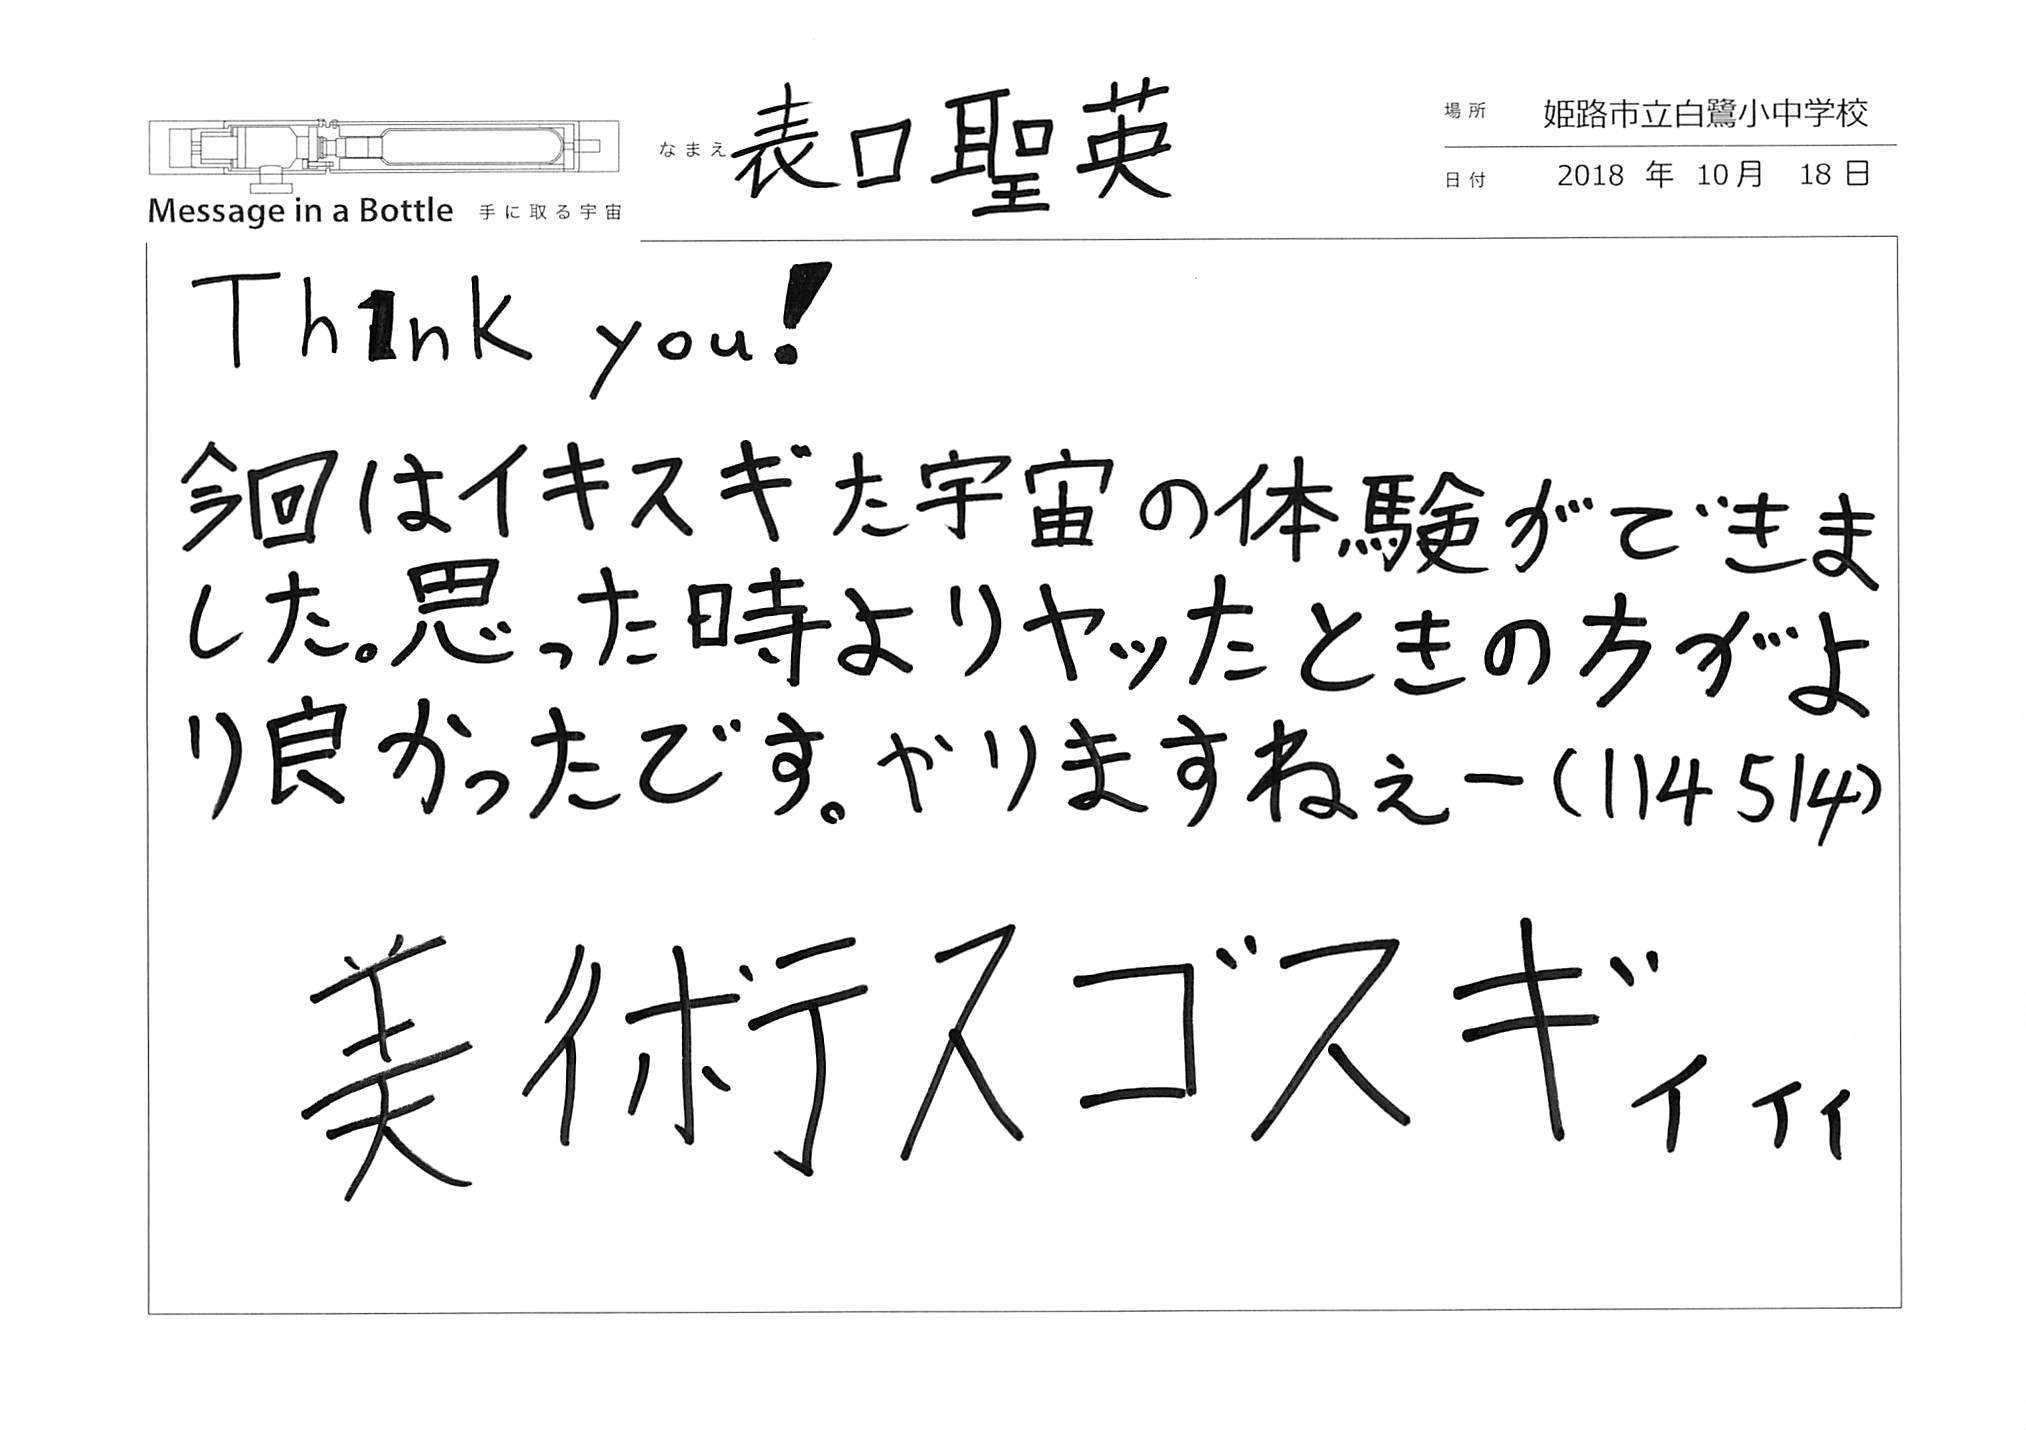 場所 姫路市立白鷺小中学校
なまえ 表口聖英
日付 2018 年 10月 18日
Message in a Bottle 手に取る宇宙
Th1nk you!
今回はイキスギた宇宙の体験ができま
した。思った時よりヤッたときの方がよ
り良かったです。やりますねぇー(114514)
美術テスゴスギィィィ